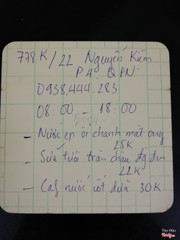 778K/22 Nguyễn Kiệm
P4. QPN
0938.444.283
08:00 - 18:00
- Nước ép ổi chanh mật ong
25K
- Sữa tươi trân châu đg đen
22K
- Caf nước cốt dừa 30K